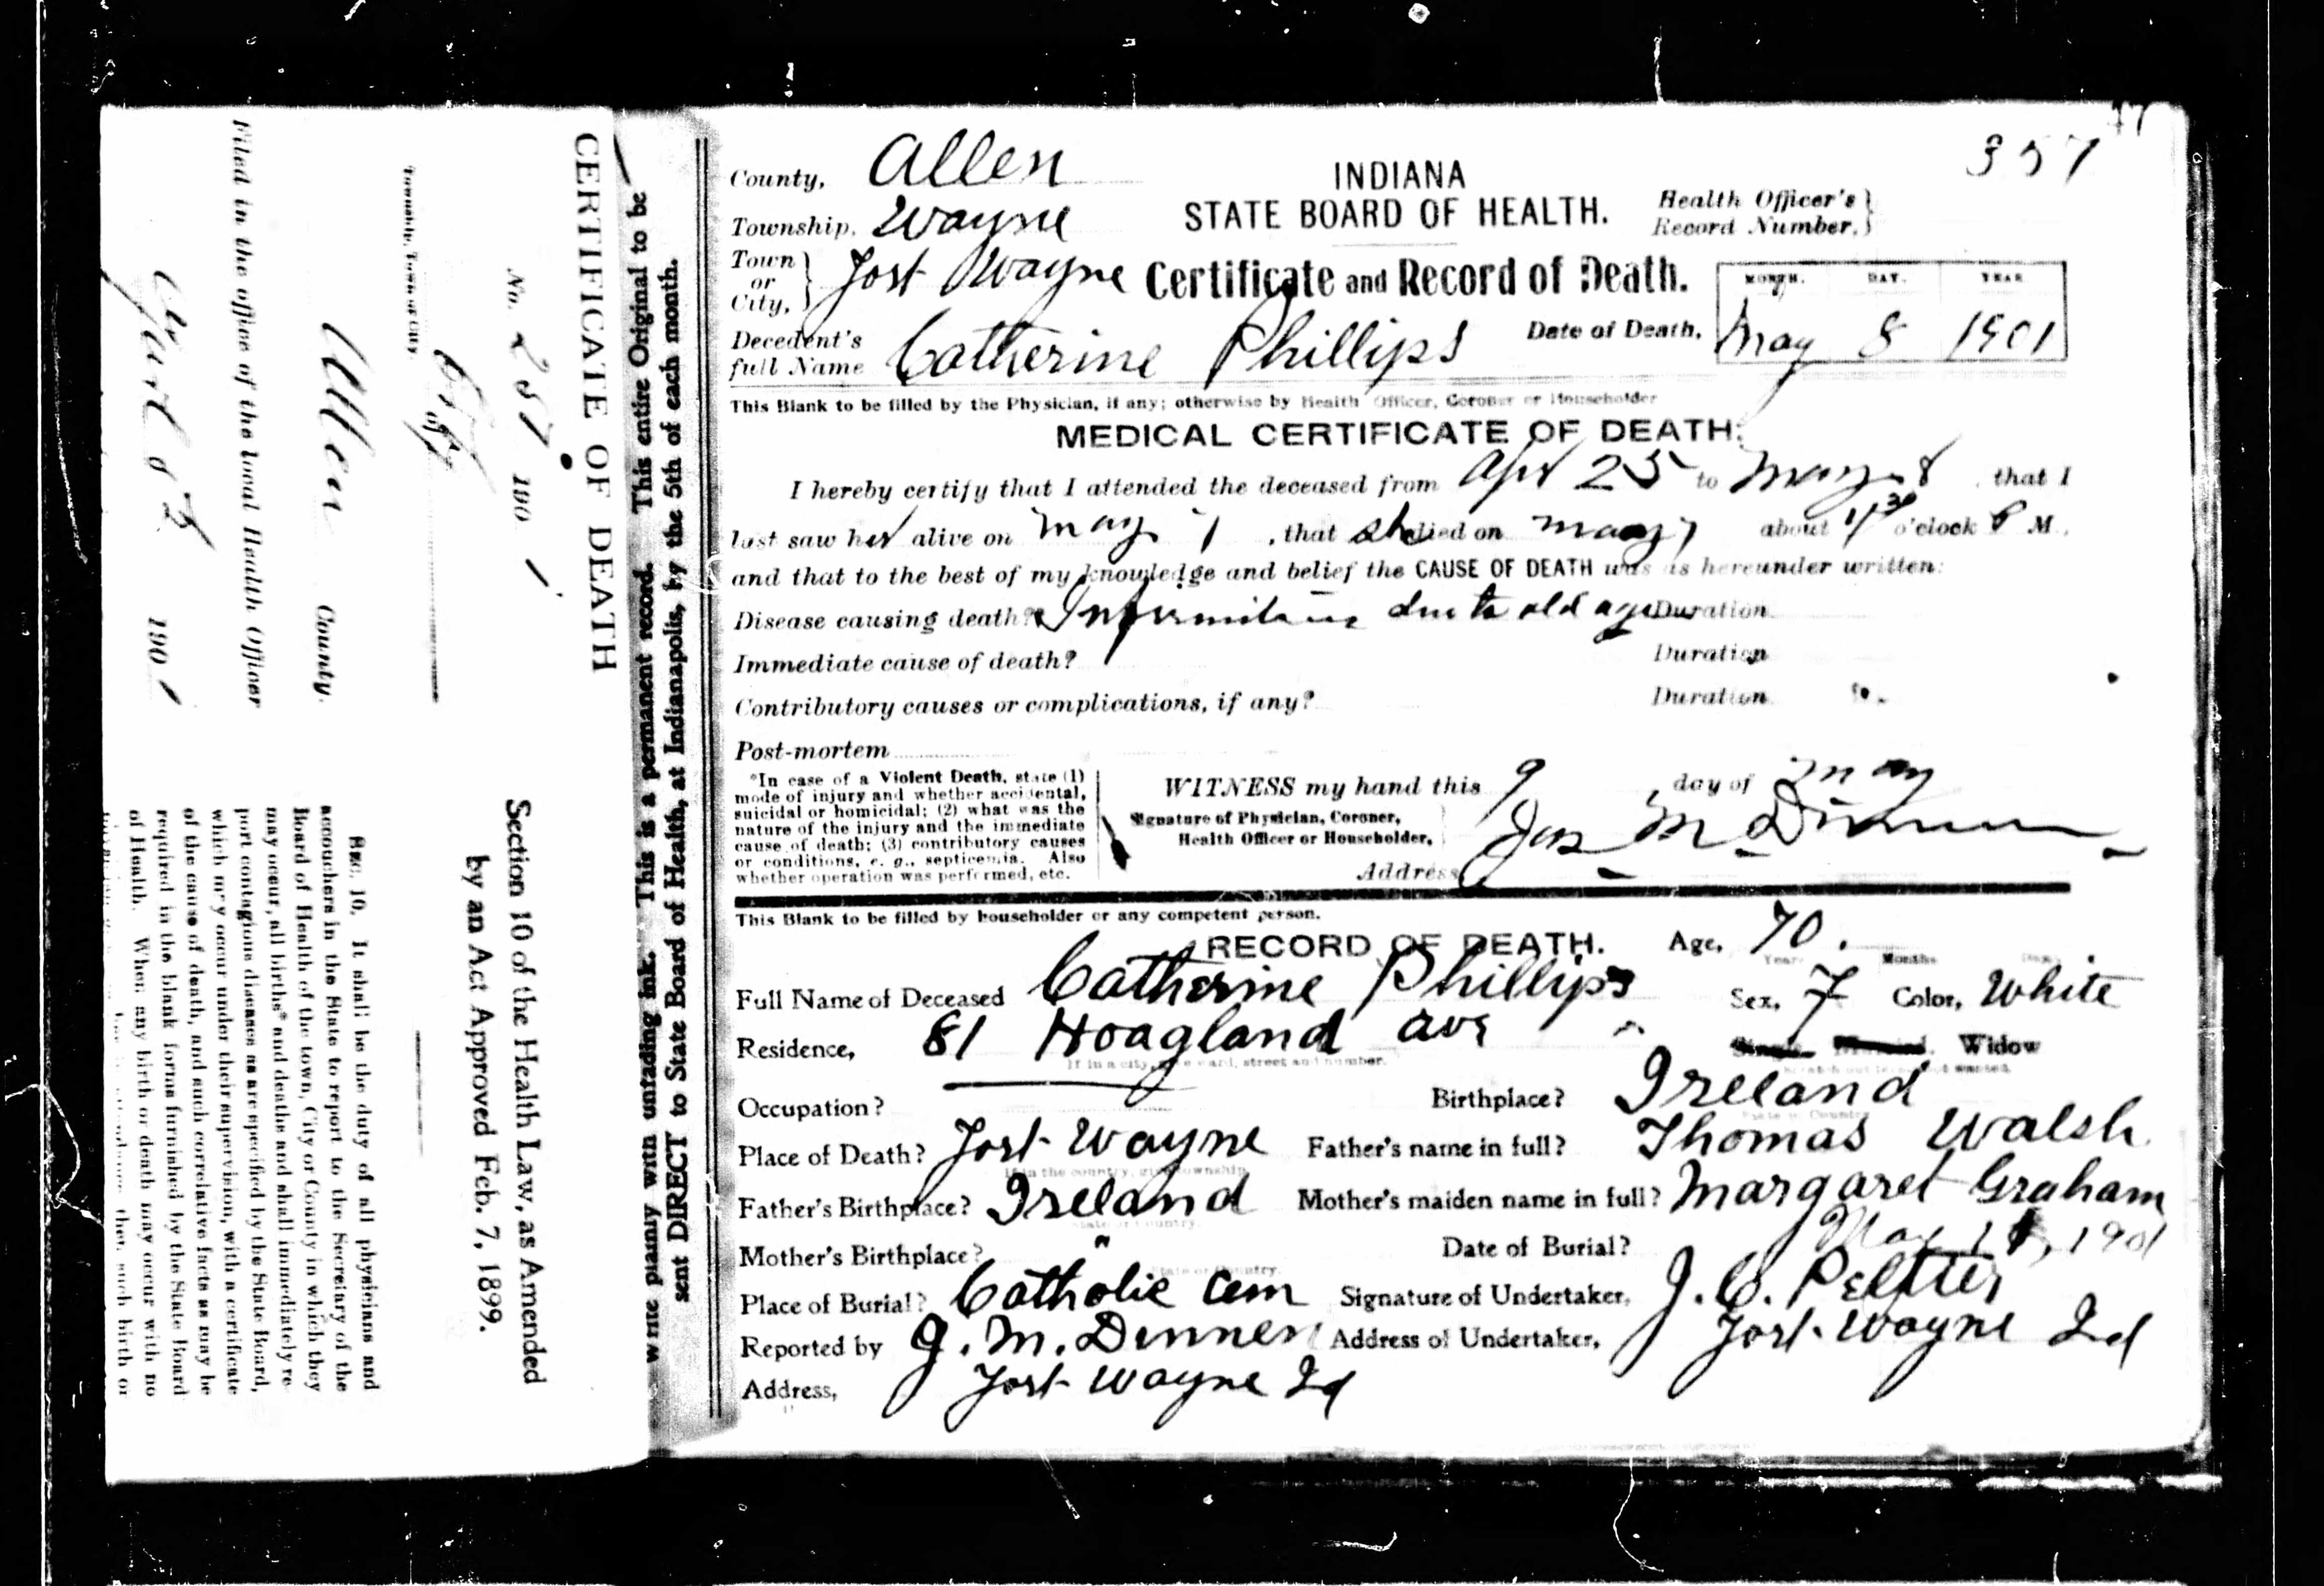 357
County, Allen
INDIANA
STATE BOARD OF HEALTH.
Health Officer's
Record Number.
Township, Wayne
Town or City, Fort Wayne
Certificate and Record of Death.
MONTH. DAY. YEAR
Decedent's full Name Catherine Phillips
Date of Death, May 8 1901
This Blank to be filled by the Physician, if any; otherwise by Health Officer, Coroner or Householder
MEDICAL CERTIFICATE OF DEATH.
I hereby certify that I attended the deceased from Apr 25 to May 8, that I
last saw her alive on May 7, that she died on May about o'clock P M.,
and that to the best of my knowledge and belief the CAUSE OF DEATH was as hereunder written:
Disease causing death?* Infirmities due to old age Duration
Immediate cause of death? Duration
Contributory causes or complications, if any? Duration
Post-mortem
*In case of a Violent Death, state (1)
mode of injury and whether accidental,
suicidal or homicidal; (2) what was the
nature of the injury and the immediate
cause of death; (3) contributory causes
or conditions, e. g., septicemia. Also
whether operation was performed, etc.
WITNESS my hand this 9 day of May
Signature of Physician, Coroner,
Health Officer or Householder, Jas M Dinnen
Address
This Blank to be filled by householder or any competent person.
RECORD OF DEATH. Age, 70.
Years Months Days
Full Name of Deceased Catherine Phillips Sex, F Color, White
Residence, 81 Hoagland ave Widow
If in a city, give ward, street and number.
Occupation? Birthplace? Ireland
State or Country
Place of Death? Fort Wayne Father's name in full? Thomas Walsh
If in the country, give township
Father's Birthplace? Ireland Mother's maiden name in full? Margaret Graham
State or Country.
Mother's Birthplace? " Date of Burial? May 1901
State or Country.
Place of Burial? Catholic Cem Signature of Undertaker, J. C. Peltier
Reported by J. M. Dinnen Address of Undertaker, Fort Wayne Id
Address, Fort Wayne Id
Write plainly with unfading ink. This is a permanent record. This entire Original to be
sent DIRECT to State Board of Health, at Indianapolis, by the 5th of each month.
CERTIFICATE OF DEATH
No. 257 1901
City
Township, Town or City.
Allen County.
Filed in the office of the local Health Officer
1901
Section 10 of the Health Law, as Amended
by an Act Approved Feb. 7, 1899.
SEC. 10. It shall be the duty of all physicians and
accouchers in the State to report to the Secretary of the
Board of Health of the town, City or County in which they
may occur, all births* and deaths and shall immediately re-
port contagious diseases as are specified by the State Board,
which may occur under their supervision, with a certificate
of the cause of death, and such correlative facts as may be
required in the blank forms furnished by the State Board
of Health. When any birth or death may occur with no
such birth or